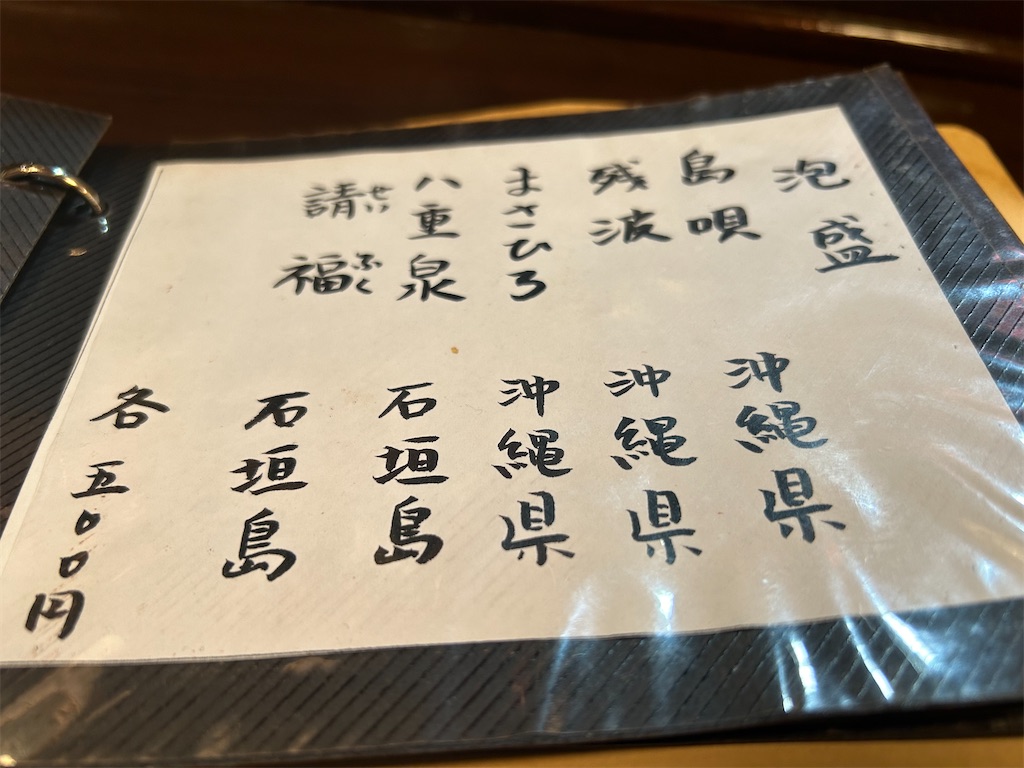 泡盛
島唄 沖縄県
残波 沖縄県
まさひろ 沖縄県
八重泉 石垣島
請福 石垣島
せいふく
各五〇〇円